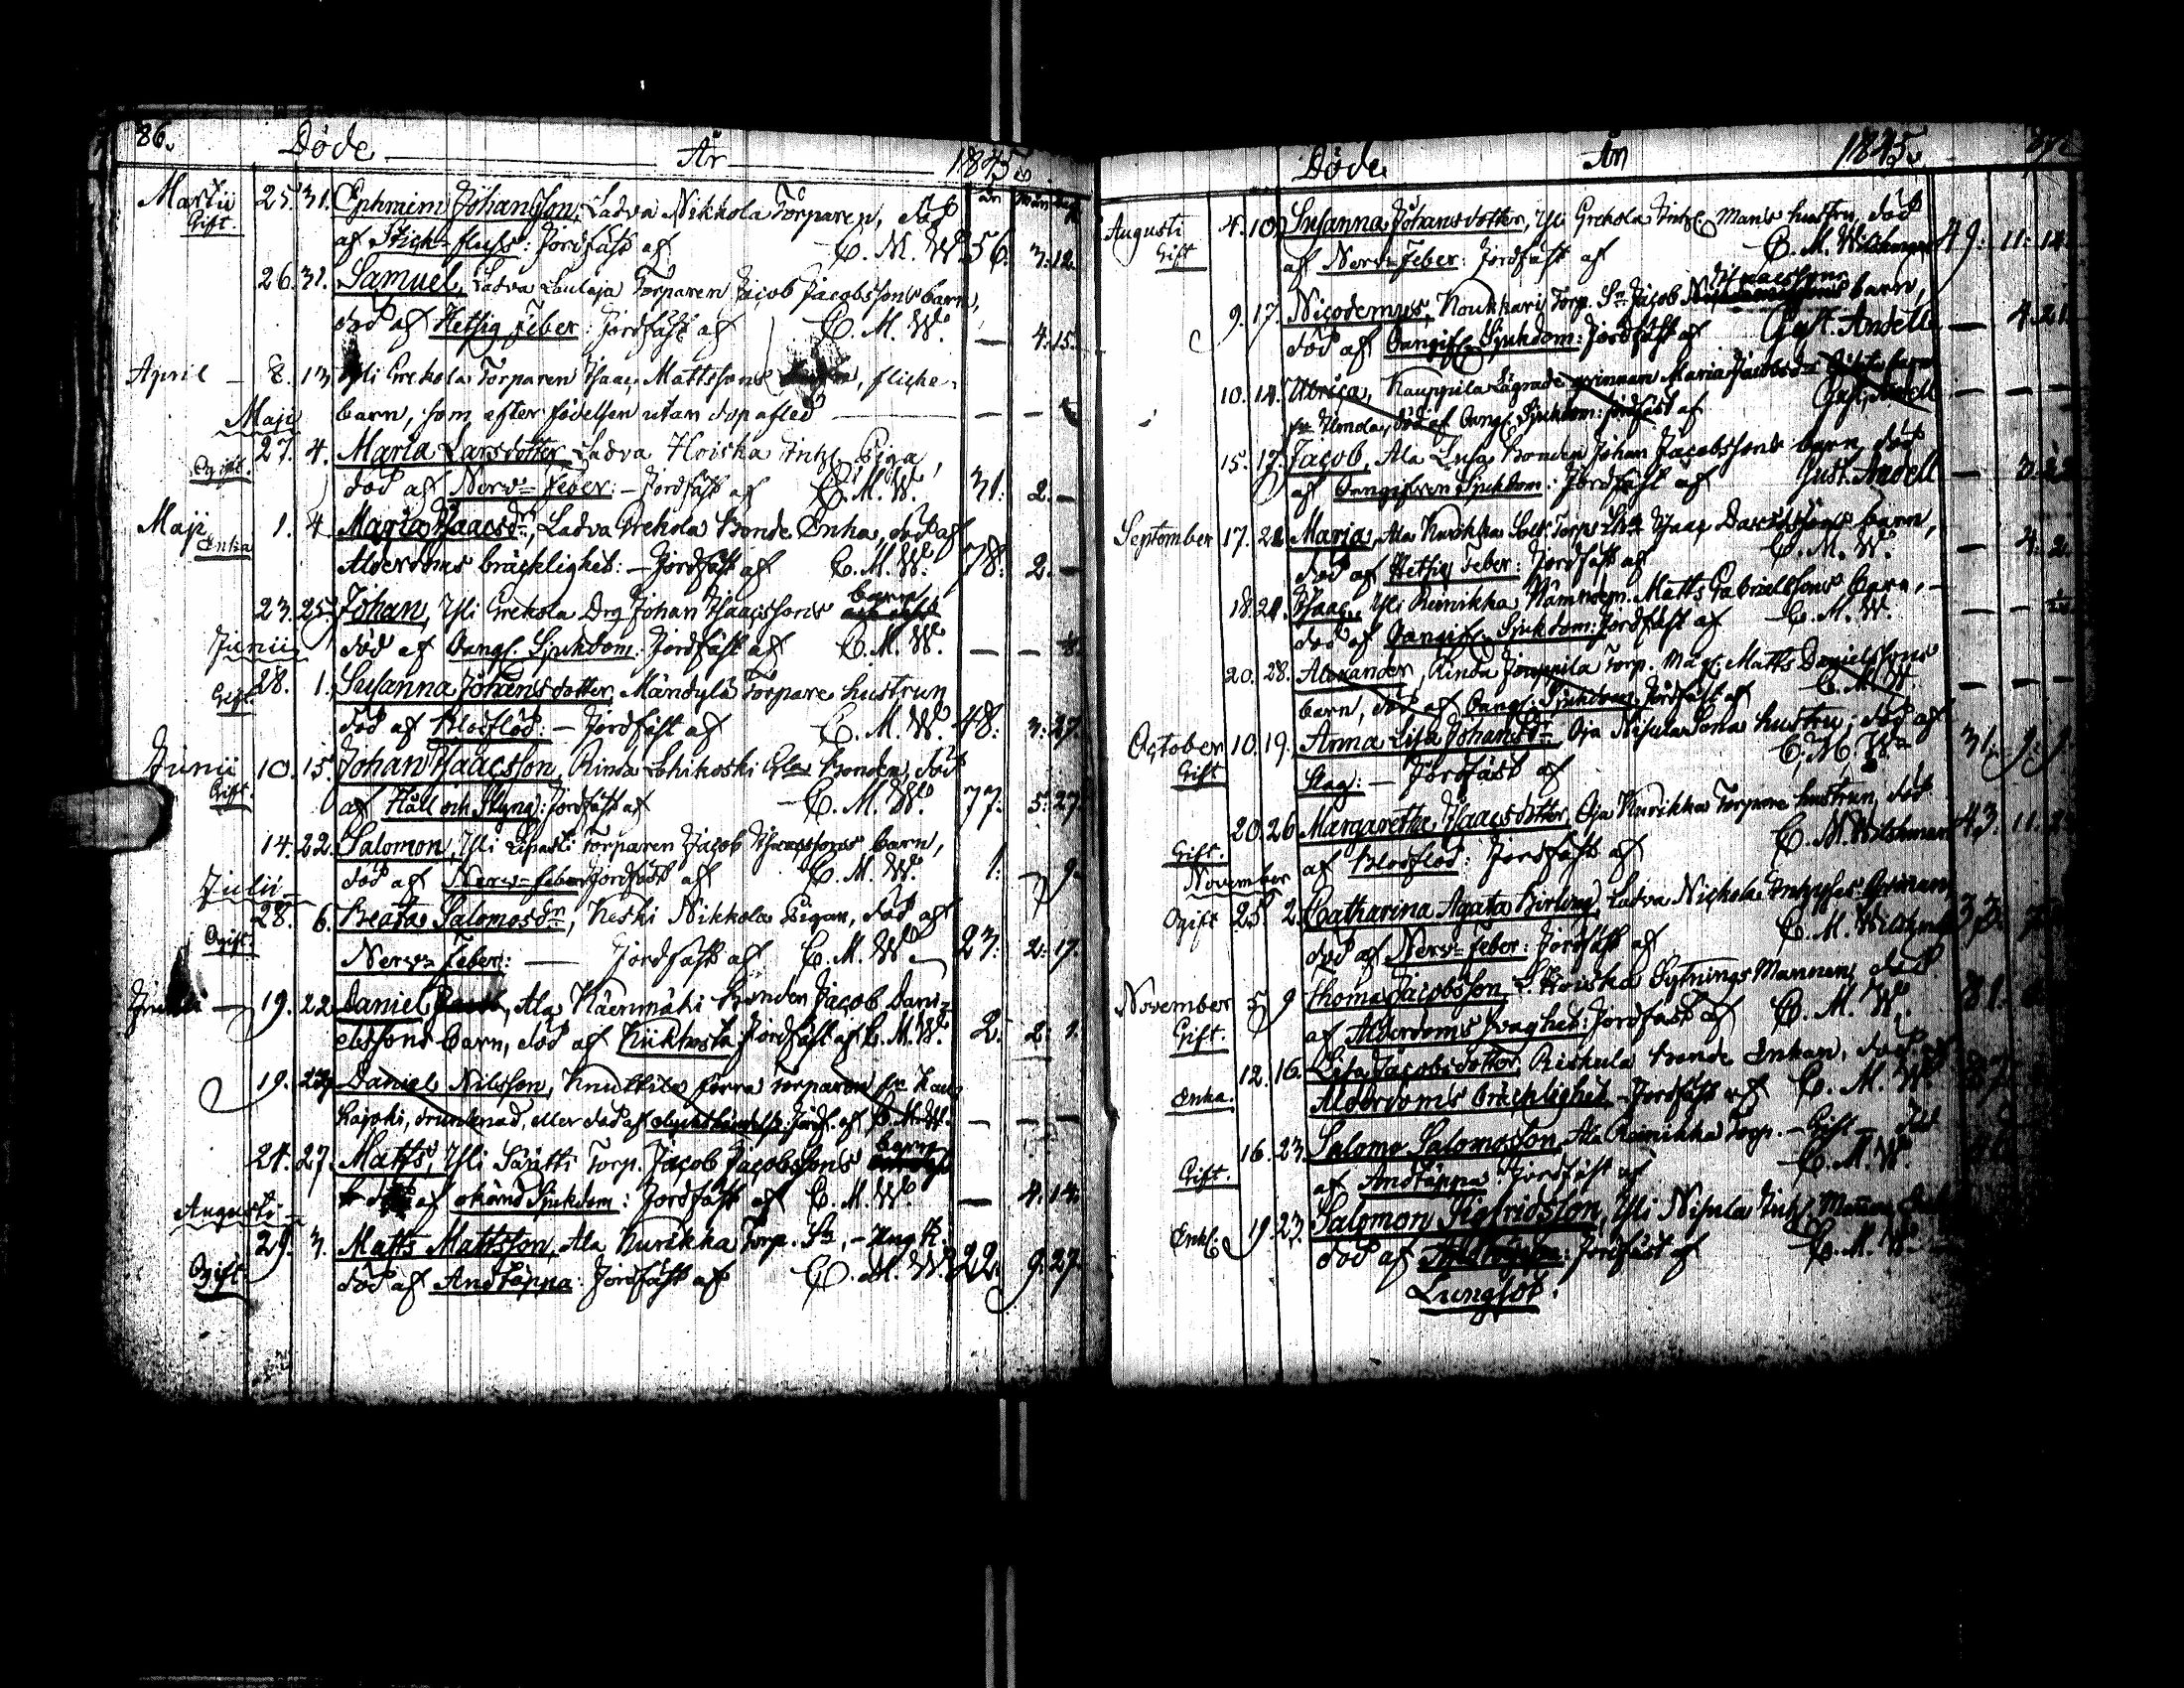 86.
Döde År 1845.
år mån dag
Martii 25. 31. Ephraim Johansson, Ladva Nikkola Torparen, död
Gift. af Stick-fluss: Jordfäst af C. M. W. 56. 3. 12.
26. 31. Samuel, Ladva Laulaja Torparen Jacob Jacobssons barn,
död af Hetsig feber: Jordfäst af C. M. W. — 4. 15.
April — 8. 13 Yli Grekola Torparen Isaac Mattssons flicke-
barn, som efter födelsen utan dop afled — — —
Maji
27. 4. Maria Larsdotter, Ladva Hoiska Inhs. Piga,
Ogift. död af Nerv-Feber: — Jordfäst af C. M. W. 31. 2. —
Maji 1. 4 Maria Isaacsdr, Ladva Grekola Bonde Enka, död af
Enka Alderdoms bräcklighet: — Jordfäst af C. M. W. 78. 2. —
23. 25. Johan, Yli Grekola Drg Johan Isaacssons barn
Junii död af Oangf. Sjukdom: Jordfäst af C. M. W. — — 8.
28. 1. Susanna Johansdotter, Mändylä Torpare hustrun
Gift. död af Blodflöd: — Jordfäst af C. M. W. 48. 3. 27.
Junii 10. 15. Johan Isaacsson, Rinda Lohikoski Bonden, död
Gift. af Håll och Styng: Jordfäst af C. M. W. 77. 5. 27.
14. 22. Salomon, Yli Torparen Jacob Isaacssons barn,
död af Nerv-feber Jordfäst af C. M. W. 1. — 9.
Julii —
28. 6. Beata Salomosdr, Keski Nikkola Pigan, död af
Ogift. Nerv-Feber: — Jordfäst af C. M. W. 23. 2. 17.
19. 22 Daniel, Ala Käenmäki Bonden Jacob Dani-
elssons barn, död af Kikhosta Jordfäst af C. M. W. 2. 2. 1.
19. Daniel Nilsson, Knuttila förra torparen fr.
drunknad, eller död af olyckshändelse: Jordf. af C. M. W. — — —
24. 27. Matts, Yli Säntti Torp. Jacob Jacobssons barn
af okänd Sjukdom: Jordfäst af C. M. W. — 4. 14.
Augusti —
29. 3. Matts Mattsson, Ala Kurikka Torp. Sn, — Ung K.
Ogift. död af Andtäppa: Jordfäst af C. M. W. 22. 9. 27.
Döde År 1845.
Augusti 4. 10. Susanna Johansdotter, Yli Grekola Inhs. Mans hustru, död
Gift af Nerv-Feber: Jordfäst af C. M. 49. 11. 14.
9. 17. Nicodemus, Koukkari Torp. Sn Jacob barn,
död af Oangif. Sjukdom: Jordfäst af Gust. Andell — 4. 21.
10. 14. Ulrica, Kauppila qvinnan Maria Jacobsdr barn
fr. Umola, död af Oangf. Sjukdom: Jordfäst af Gust. Andell — — —
15. 17. Jacob, Ala Lusa Bonden Johan Jacobssons barn, död
af Oangifven Sjukdom: Jordfäst af Gust. Andell — 3. 22
September 17. 21. Maria, Ala Kurikka Torp. Isaac Davidssons barn,
död af Hetsig Feber: Jordfäst af C. M. W. — 4. 2.
18. 21. Isaac, Yli Reinikka Nämndem. Matts Gabrielssons barn, —
död af Oangif. Sjukdom: Jordfäst af C. M. W. — —
20. 28. Alexander, Rinda Torp. Måg. Matts Danielssons
barn, död af Oangf. Sjukdom: Jordfäst af C. M. W. — — —
October 10. 19. Anna Lisa Johansdr, Oja Nisula Sona hustru, död af
Gift Slag: — Jordfäst af C. M. W. 31. 9. 9.
20. 26 Margaretha Isaacsdotter, Oja Kurikka Torpare hustrun, död
Gift. af Blodflöd: Jordfäst af C. M. 43. 11.
November
Ogift 25. 2. Catharina Agata Ladva Nickola
död af Nerv-feber: Jordfäst af C. M. 33.
November 5 9 Thomas Jacobsson, L. Hoiska Sytnings Mannen, död
Gift. af Alderdoms svaghet: Jordfäst af C. M. W. 81.
12. 16. Lisa Jacobsdotter, Riskula Bonde Enkan, död af
Enka. Alderdoms Bräcklighet — Jordfäst af C. M. W.
16. 23. Salomo Salomosson, Ala Reinikka Torp. — Gift — död
Gift. af Andtäppa: Jordfäst af C. M. W.
19. 23. Salomon Sigfridsson, Yli Nisula Inhs. Mannen,
Enkl. död af Jordfäst af C. M. W.
Lungsot.